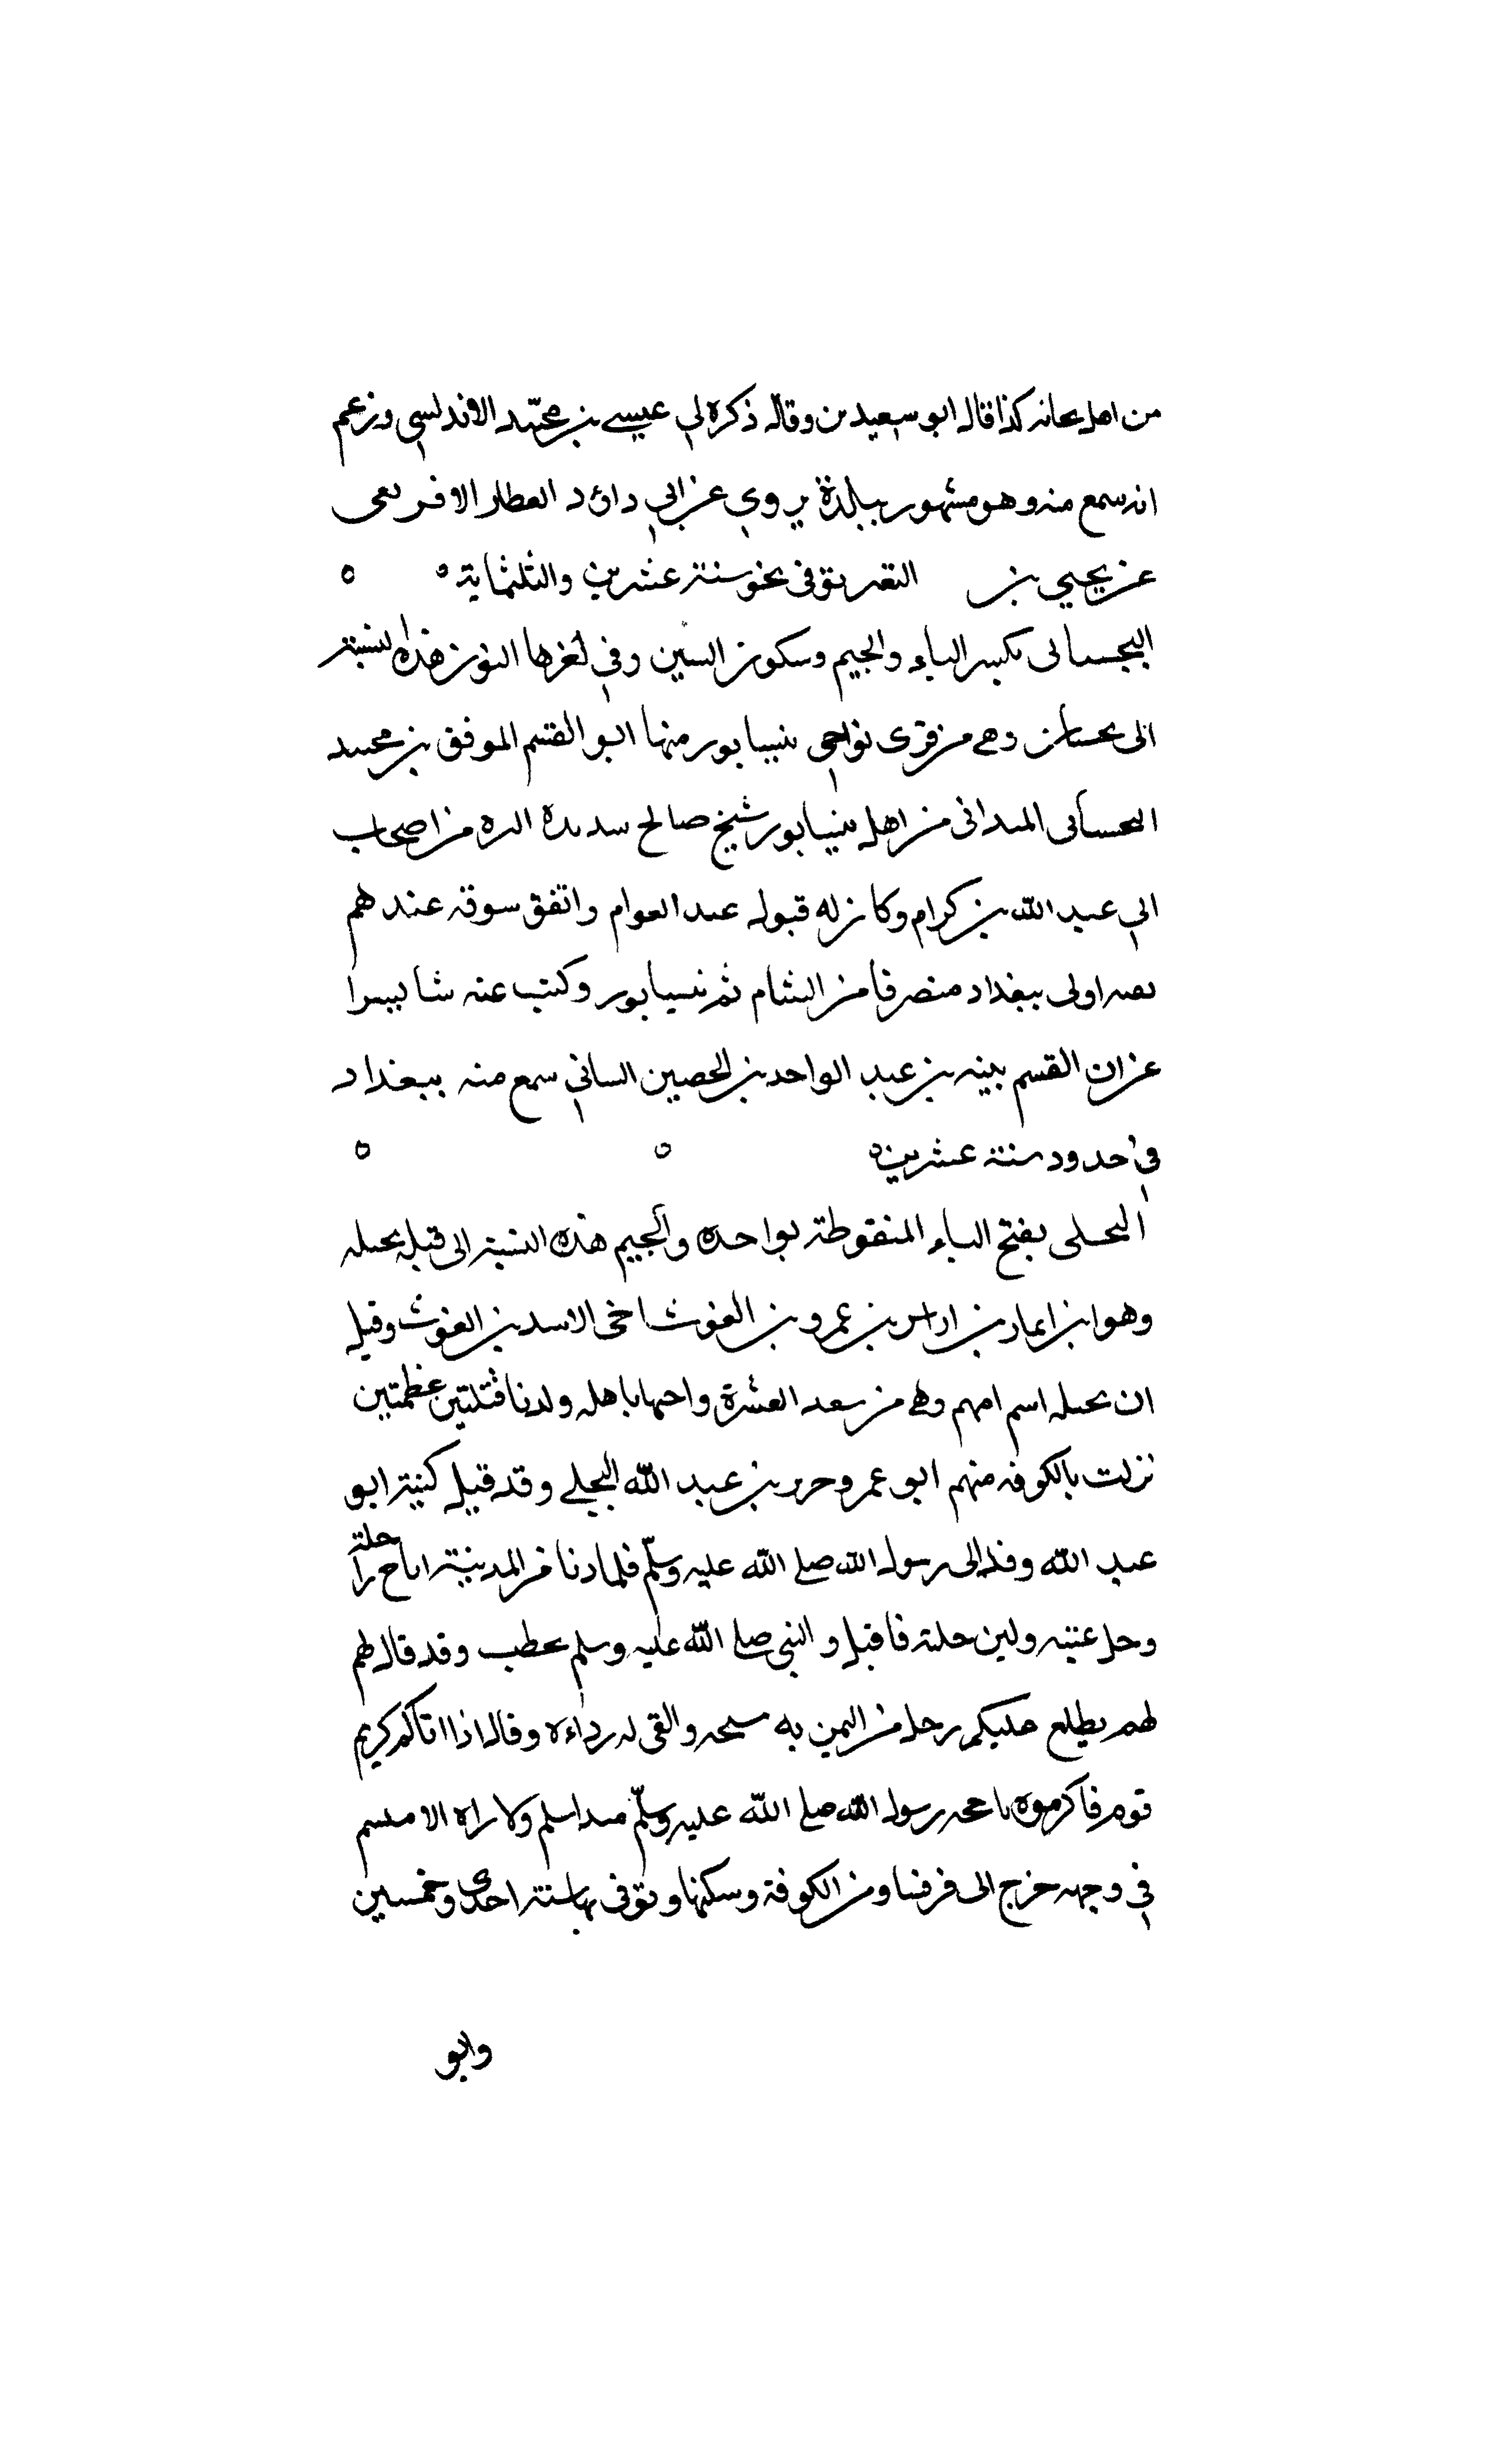 من اهل بجانه كذا قال ابو سعيد بن وقال ذكره لي عيسى بن محمد الاندلسي وزعم
انه سمع منه وهو مشهور ببلدة يروي عن ابي داؤد العطار الافريقى
عن يحيي بن التقريبوفى نحو سنة عشرين والثلثماية ه ه
البجسانى بكسر الباء والجيم وسكون السين وفي اخرها النون هذه النسبة
الى بجستان وهى من قرى نواحى نيسابور منها ابو القسم الموفق بن محمد
البجستانى الميدانى من اهل نيسابور شيخ صالح سديدة السره من اصحاب
ابي عبد الله بن كرام وكان له قبول عند العوام واتفق سوقه عندهم
اولى ببغداد منصرفا من الشام ثم نيسابور وكتب عنه شا يسرا
عن ان القسم بن عبد الواحد بن الحصين السانى سمع منه ببغداد
في حدود سنة عشرين ه ه ه
البجلى بفتح الباء المنقوطة بواحده والجيم هذه النسبة الى قبيله بجيله
وهو ابن انمار بن اراس بن عمرو بن الغوث اخى الاسد بن الغوث وقيل
ان بجيله اسم امهم وهى من سعد العشرة واختها باهله ولدنا قبيلتين عظمتين
نزلت بالكوفه منهم ابو عمرو جرير بن عبد الله البجلي وقد قيل كنيته ابو
عبد الله وفد الى رسول الله صلى الله عليه وسلم فلما دنا من المدينة اناخ راحلته
وحل عيبته ولبس حلته فاقبل والنبى صلى الله عليه وسلم يخطب وقد قال لهم
لهم يطلع عليكم رجل من اليمن به مسحه والقى له رداءه وقال اذا اتاكم كريم
قوم فاكرموه ما حجبه رسول الله صلى الله عليه وسلم منذ اسلم ولا راه الا مبتسم
في وجهه خرج الى قرقيسا ومن الكوفة وسكنها وتوفى بها سنة احدى وخمسين
وابو